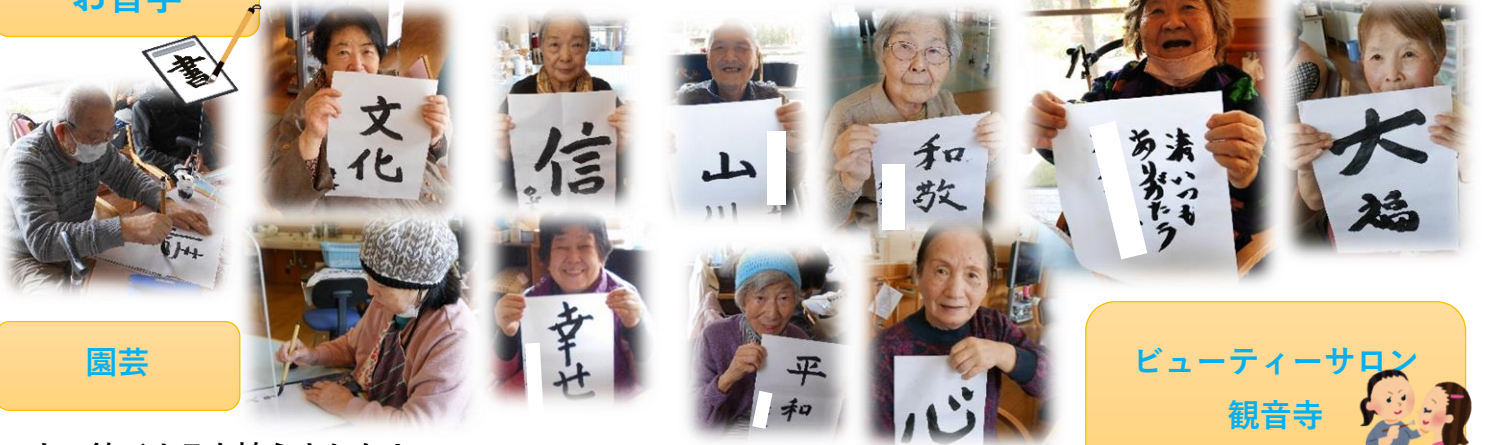 お習字
書
文化
信
山
川
和
敬
湊いつも
ありがたう
大
福
園芸
幸せ
平
和
心
ビューティーサロン
観音寺